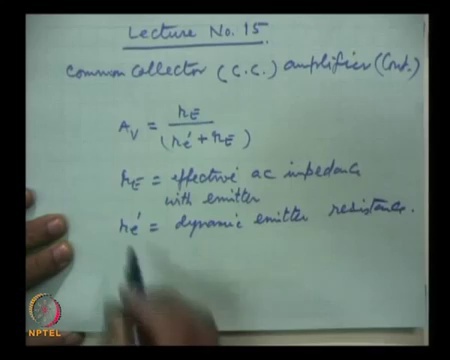 Lecture No. 15.
Common collector (C.C.) amplifier (Cont.)
A_V = r_E / (r_e' + r_E)
r_E = effective ac impedance
with emitter
r_e' = dynamic emitter resistance.
NPTEL